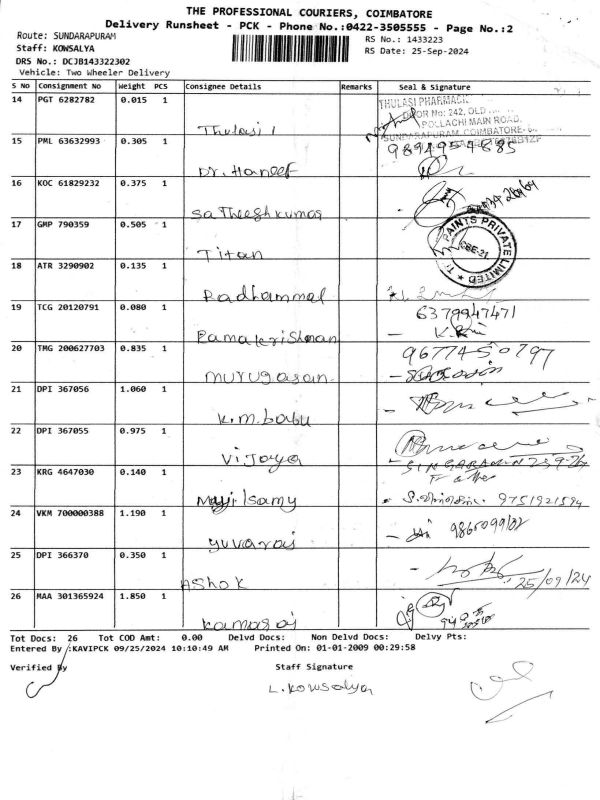 THE PROFESSIONAL COURIERS, COIMBATORE
Delivery Runsheet - PCK - Phone No.:0422-3505555 - Page No.:2
Route: SUNDARAPURAM
RS No.: 1433223
Staff: KOWSALYA
RS Date: 25-Sep-2024
DRS No.: DCJB143322302
Vehicle: Two Wheeler Delivery
S No Consignment No Weight PCS Consignee Details Remarks Seal & Signature
14 PGT 6282782 0.015 1
THULASI PHARMACY
DOOR No: 242, OLD
POLLACHI MAIN ROAD,
SUNDARAPURAM, COIMBATORE-
Thulasi 1
15 PML 63632993 0.305 1 9894954885
Dr. Haneef
16 KOC 61829232 0.375 1
Satheeshkumar
17 GMP 790359 0.505 1
PAINTS PRIVATE LIMITED
CBE-21
Titan
18 ATR 3290902 0.135 1
Radhammal
19 TCG 20120791 0.080 1 6379947471
Ramakrishnan
20 TMG 200627703 0.835 1 9677450797
murugasan
21 DPI 367056 1.060 1
K.m.babu
22 DPI 367055 0.975 1
Vijaya
23 KRG 4647030 0.140 1
9751921594
24 VKM 700000388 1.190 1
yuvaraj
25 DPI 366370 0.350 1
25/09/24
Ashok
26 MAA 301365924 1.850 1
Kamaraj
Tot Docs: 26 Tot COD Amt: 0.00 Delvd Docs: Non Delvd Docs: Delvy Pts:
Entered By :KAVIPCK 09/25/2024 10:10:49 AM Printed On: 01-01-2009 00:29:58
Verified By Staff Signature
L. Kowsalya